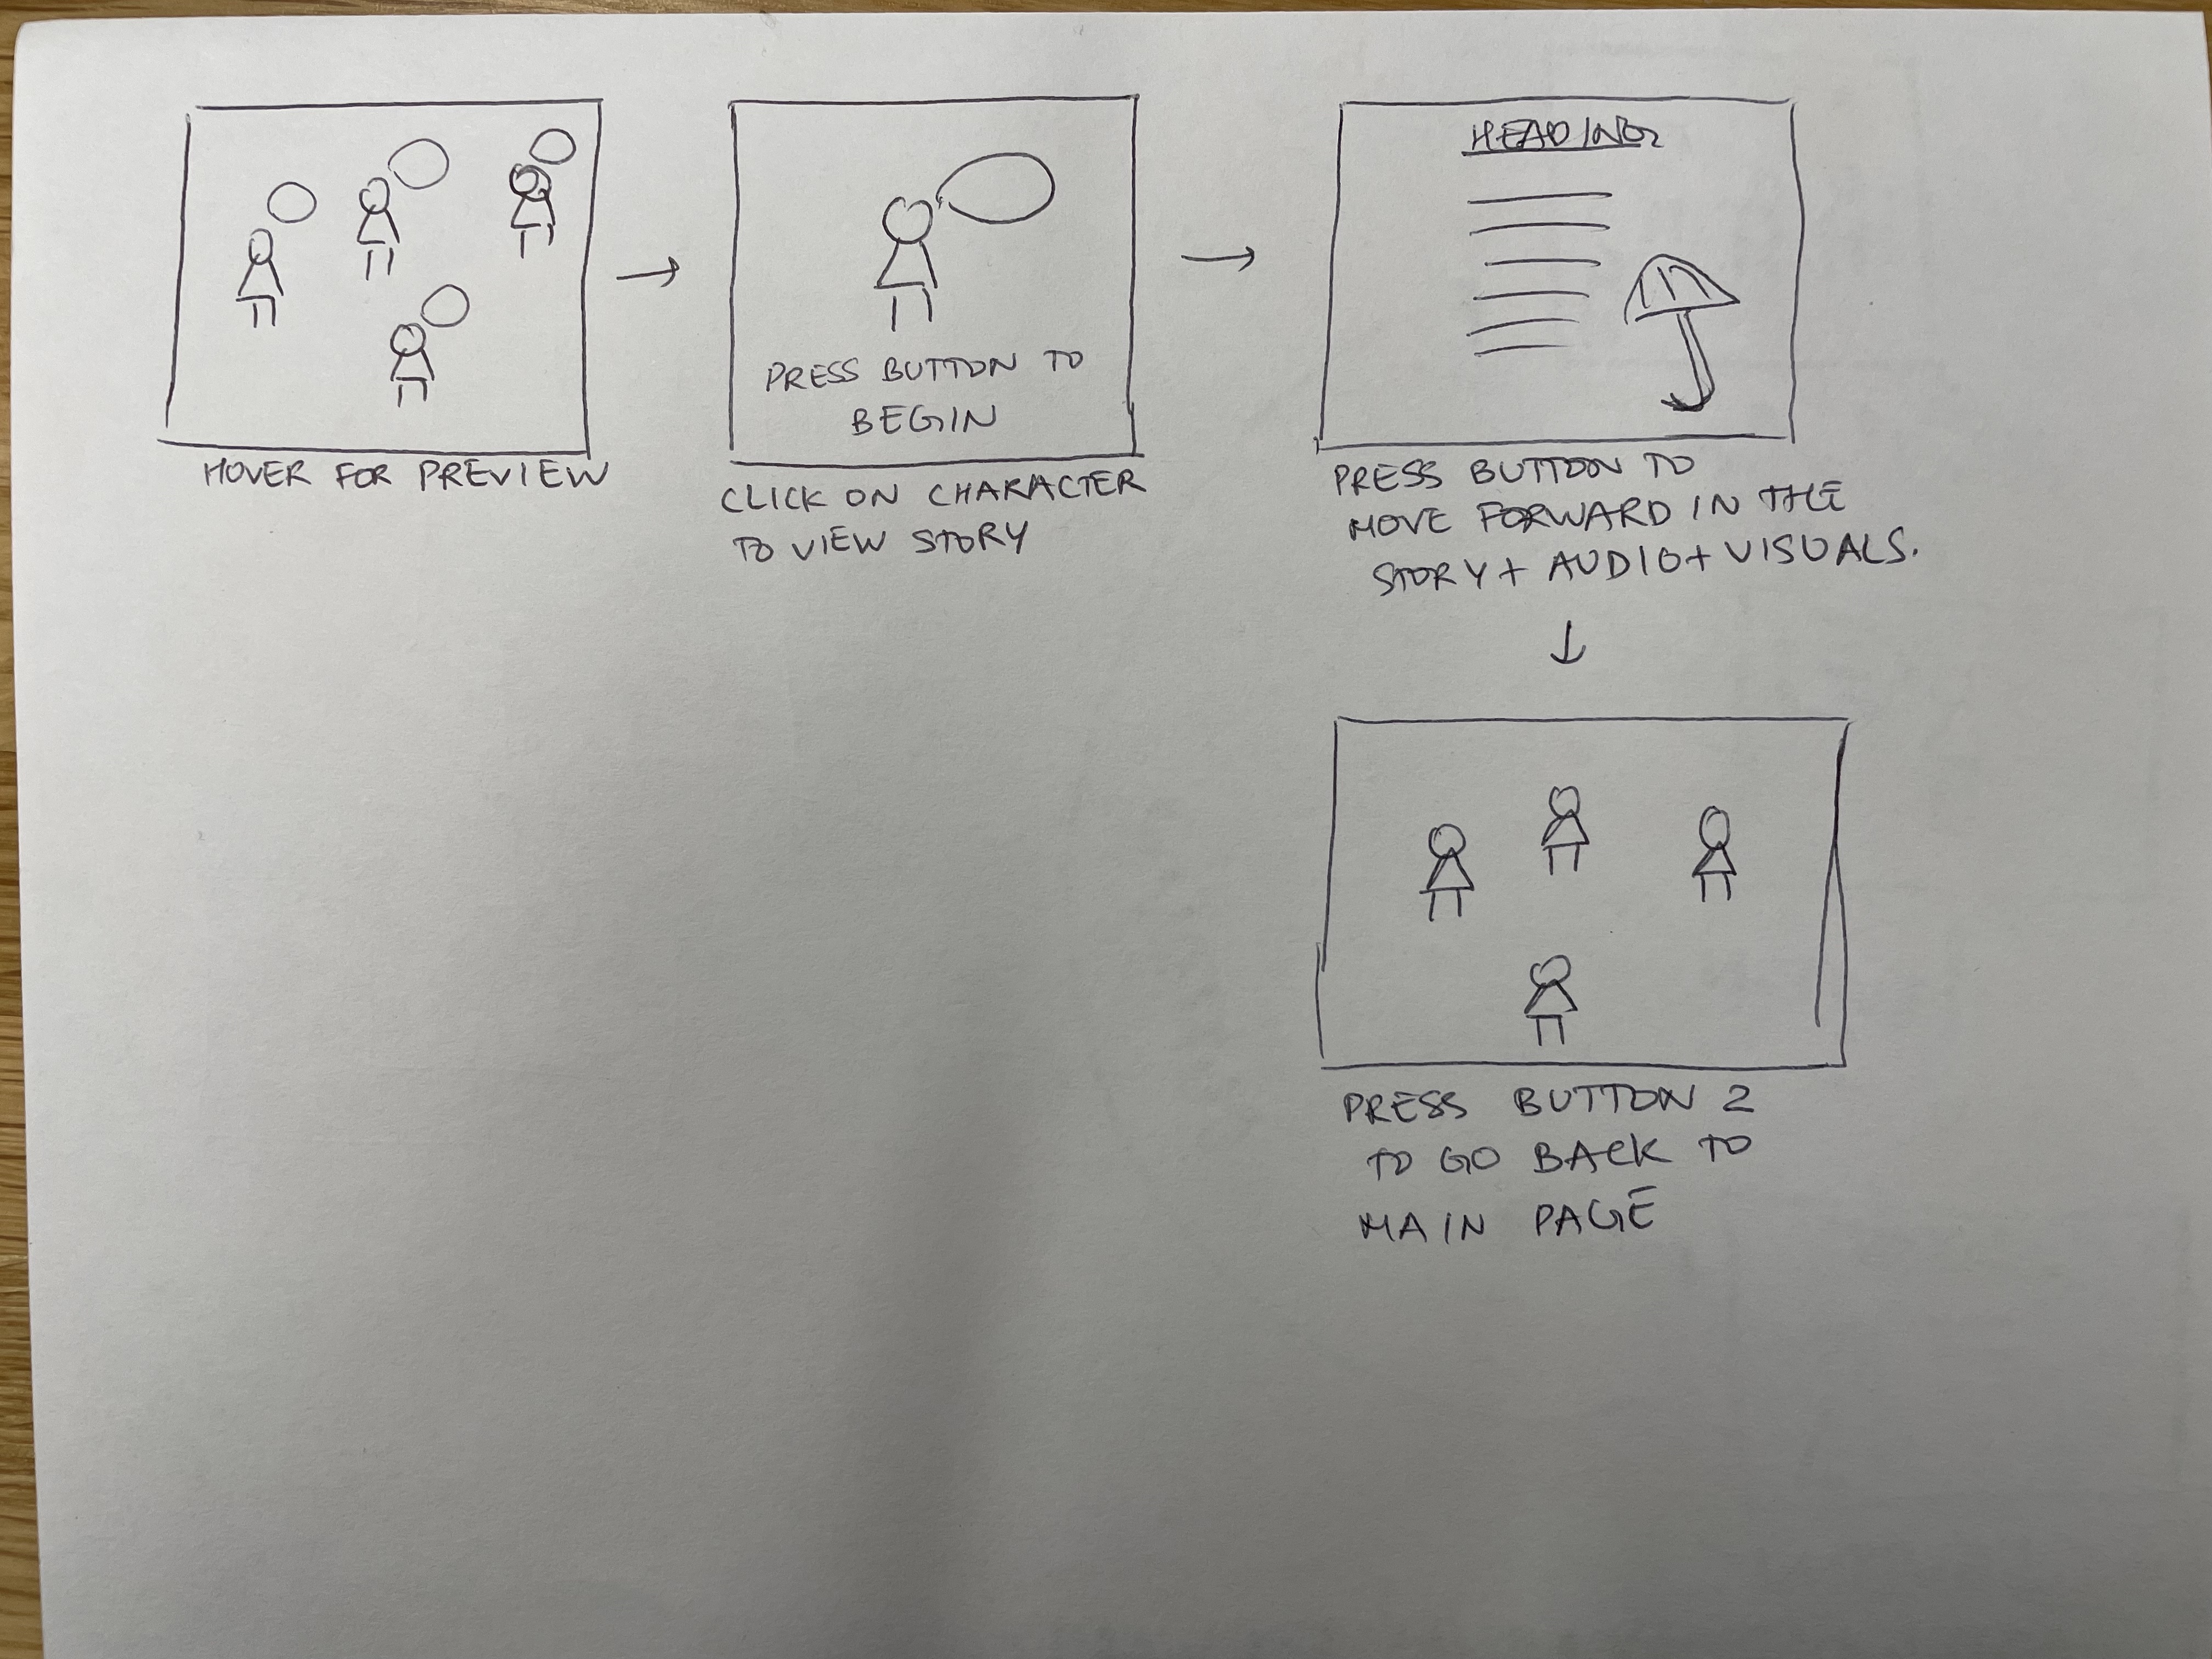 HOVER FOR PREVIEW
PRESS BUTTON TO
BEGIN
CLICK ON CHARACTER
TO VIEW STORY
HEADING
PRESS BUTTON TO
MOVE FORWARD IN THE
STORY + AUDIO + VISUALS.
PRESS BUTTON 2
TO GO BACK TO
MAIN PAGE